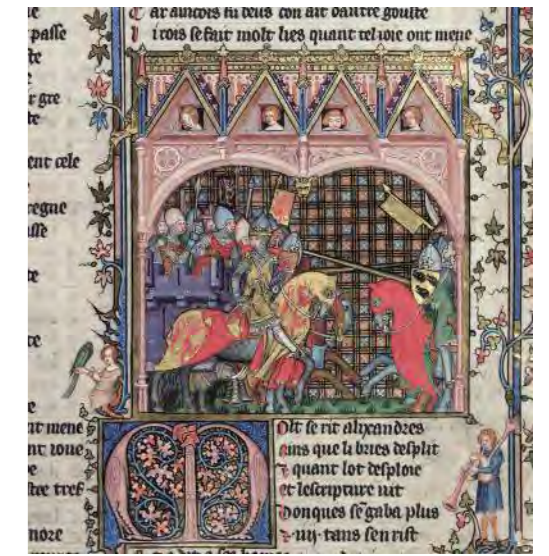 passe
te
r gre
te
ent cele
regne
asse
te
re
e
nt mene
nt ioue
e
stee tref
nore
C ar aincois fu deus con ait dautre goulte
l i rois se fait molt lies quant tel ioie ont mene
M olt se rit alixandres
ains que li bries desplit
quant lot desploie
et lescripture uit
Donques se gaba plus
iiij tans sen rist